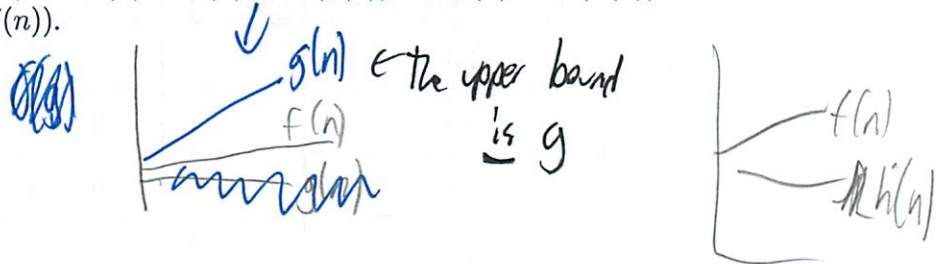 (n)).
g(n) ← the upper bound
is g
f(n)
g(n)
f(n)
h(n)